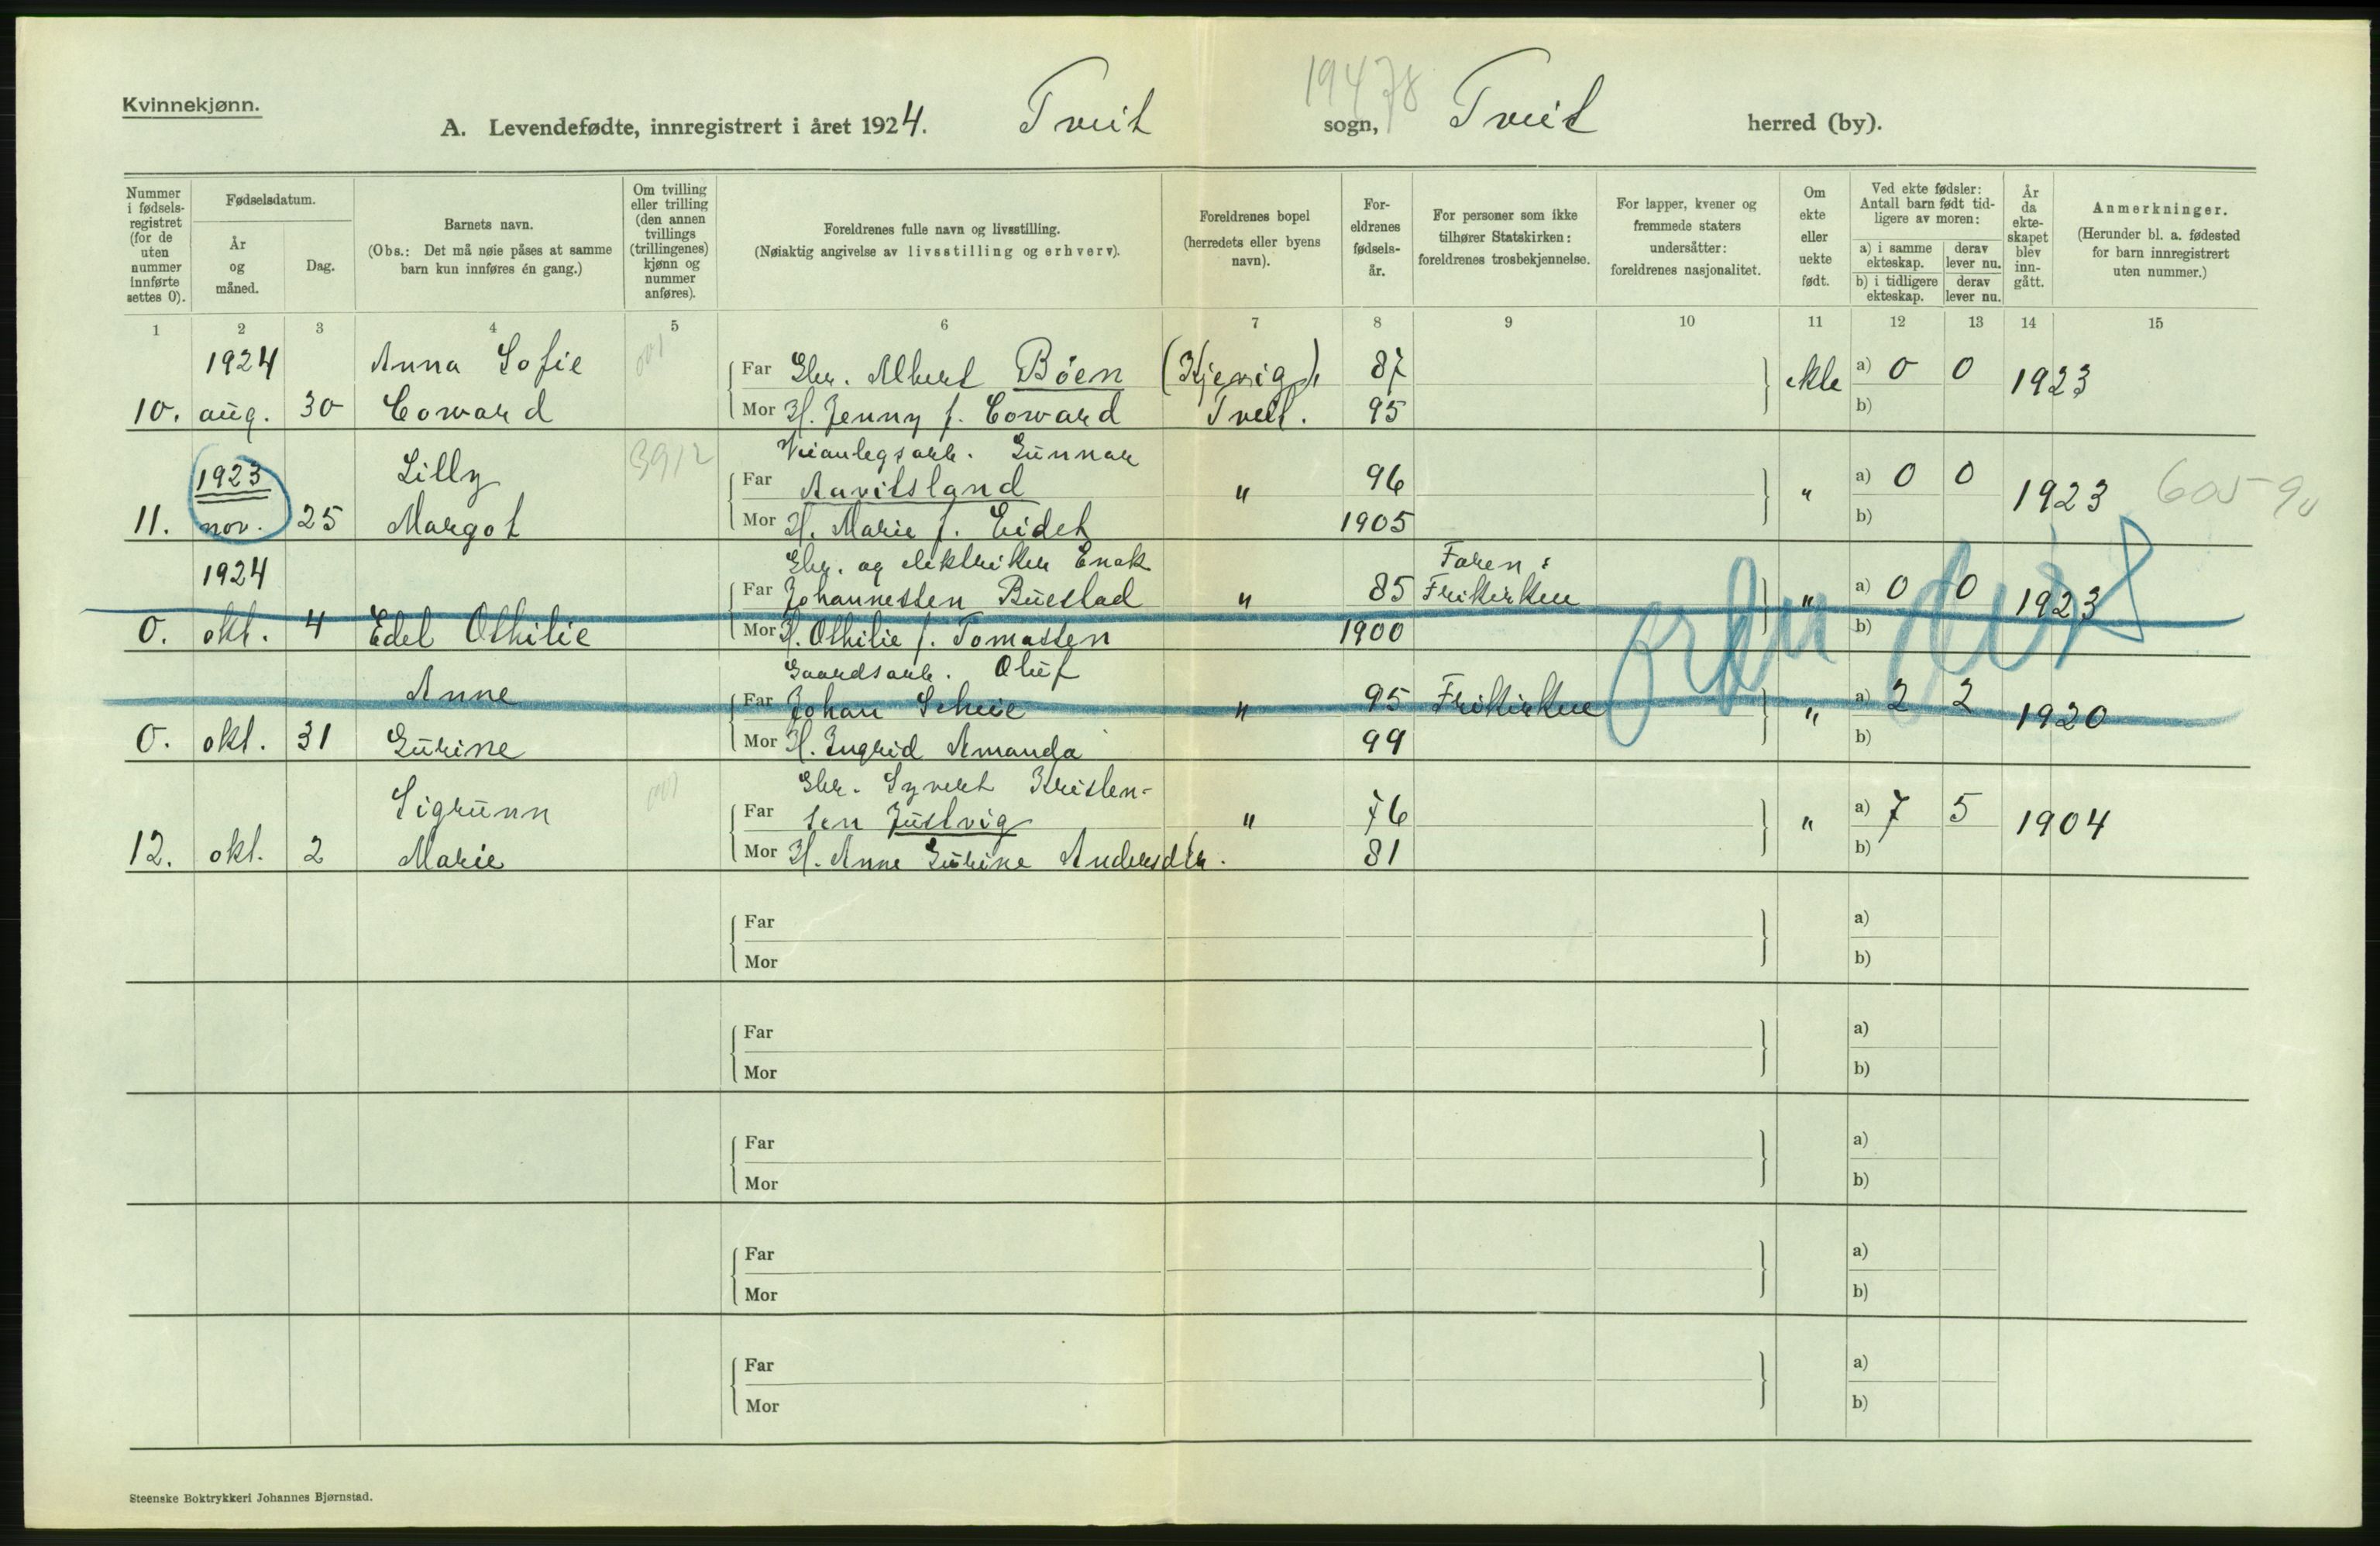 Kvinnekjønn.
A. Levendefødte, innregistrert i året 1924. Tveit sogn, Tveit herred (by).
19478
Nummer i fødsels-registret (for de uten nummer innførte settes 0).
Fødselsdatum.
År og måned.
Dag.
Barnets navn.
(Obs.: Det må nøie påses at samme barn kun innføres én gang.)
Om tvilling eller trilling (den annen tvillings (trillingenes) kjønn og nummer anføres).
Foreldrenes fulle navn og livsstilling.
(Nøiaktig angivelse av livsstilling og erhverv).
Foreldrenes bopel (herredets eller byens navn).
For-eldrenes fødsels-år.
For personer som ikke tilhører Statskirken: foreldrenes trosbekjennelse.
For lapper, kvener og fremmede staters undersåtter: foreldrenes nasjonalitet.
Om ekte eller uekte født.
Ved ekte fødsler: Antall barn født tid-ligere av moren:
a) i samme ekteskap. derav lever nu.
b) i tidligere ekteskap. derav lever nu.
År da ekte-skapet blev inn-gått.
Anmerkninger.
(Herunder bl. a. fødested for barn innregistrert uten nummer.)
1 2 3 4 5 6 7 8 9 10 11 12 13 14 15
1924 Anna Sofie Far Gbr. Albert Böen (Kjevig), 87 ekte a) 0 0 1923
10. aug. 30 Coward Mor H. Jenny f. Coward Tveit. 95 b)
Veianlegsarb. Gunnar
1923 Lilly 3912 Far Aavitsland " 96 " a) 0 0 1923 605 90
11. nov. 25 Margot Mor H. Marie f. Eidet 1905 b)
Gbr. og elektriker Enok Faren:
1924 Far Johannessen Buestad " 85 Frikirken " a) 0 0 1923
0. okt. 4 Edel Othilie Mor H. Othilie f. Tomassen 1900 b)
Gaardsarb. Oluf
Anne Far Johan Scheie " 95 Frikirken " a) 2 2 1920
0. okt. 31 Gurine Mor H. Ingrid Amanda 99 b)
Gbr. Syvert Kristen-
Sigrunn Far sen Justvig " 76 " a) 7 5 1904
12. okt. 2 Marie Mor H. Anne Gurine Andersdtr. 81 b)
Far a)
Mor b)
Far a)
Mor b)
Far a)
Mor b)
Far a)
Mor b)
Far a)
Mor b)
Steenske Boktrykkeri Johannes Bjørnstad.